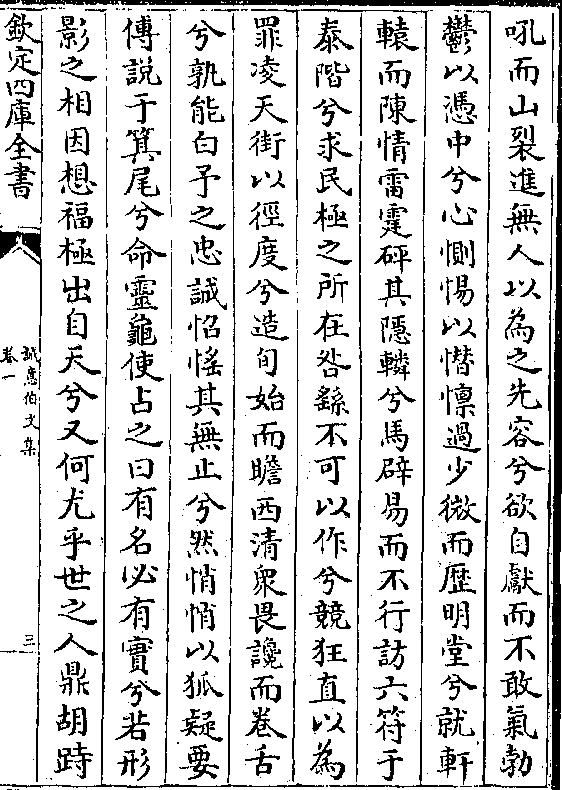 吼而山裂進無人以為之先容兮欲自獻而不敢氣勃
鬱以憑中兮心惻惕以憯懍過少微而歴明堂兮就軒
轅而陳情雷霆砰其隱轔兮馬辟易而不行訪六符于
泰階兮求民極之所在咎繇不可以作兮競狂直以為
罪凌天街以徑度兮造旬始而瞻西清衆畏讒而卷舌
兮孰能白予之忠誠怊慅其無止兮然悄悄以狐疑要
傅説于箕尾兮命靈龜使占之曰有名必有實兮若形
影之相因想福極出自天兮又何尤乎世之人鼎胡跱
欽定四庫全書
誠意伯文集
卷一
三